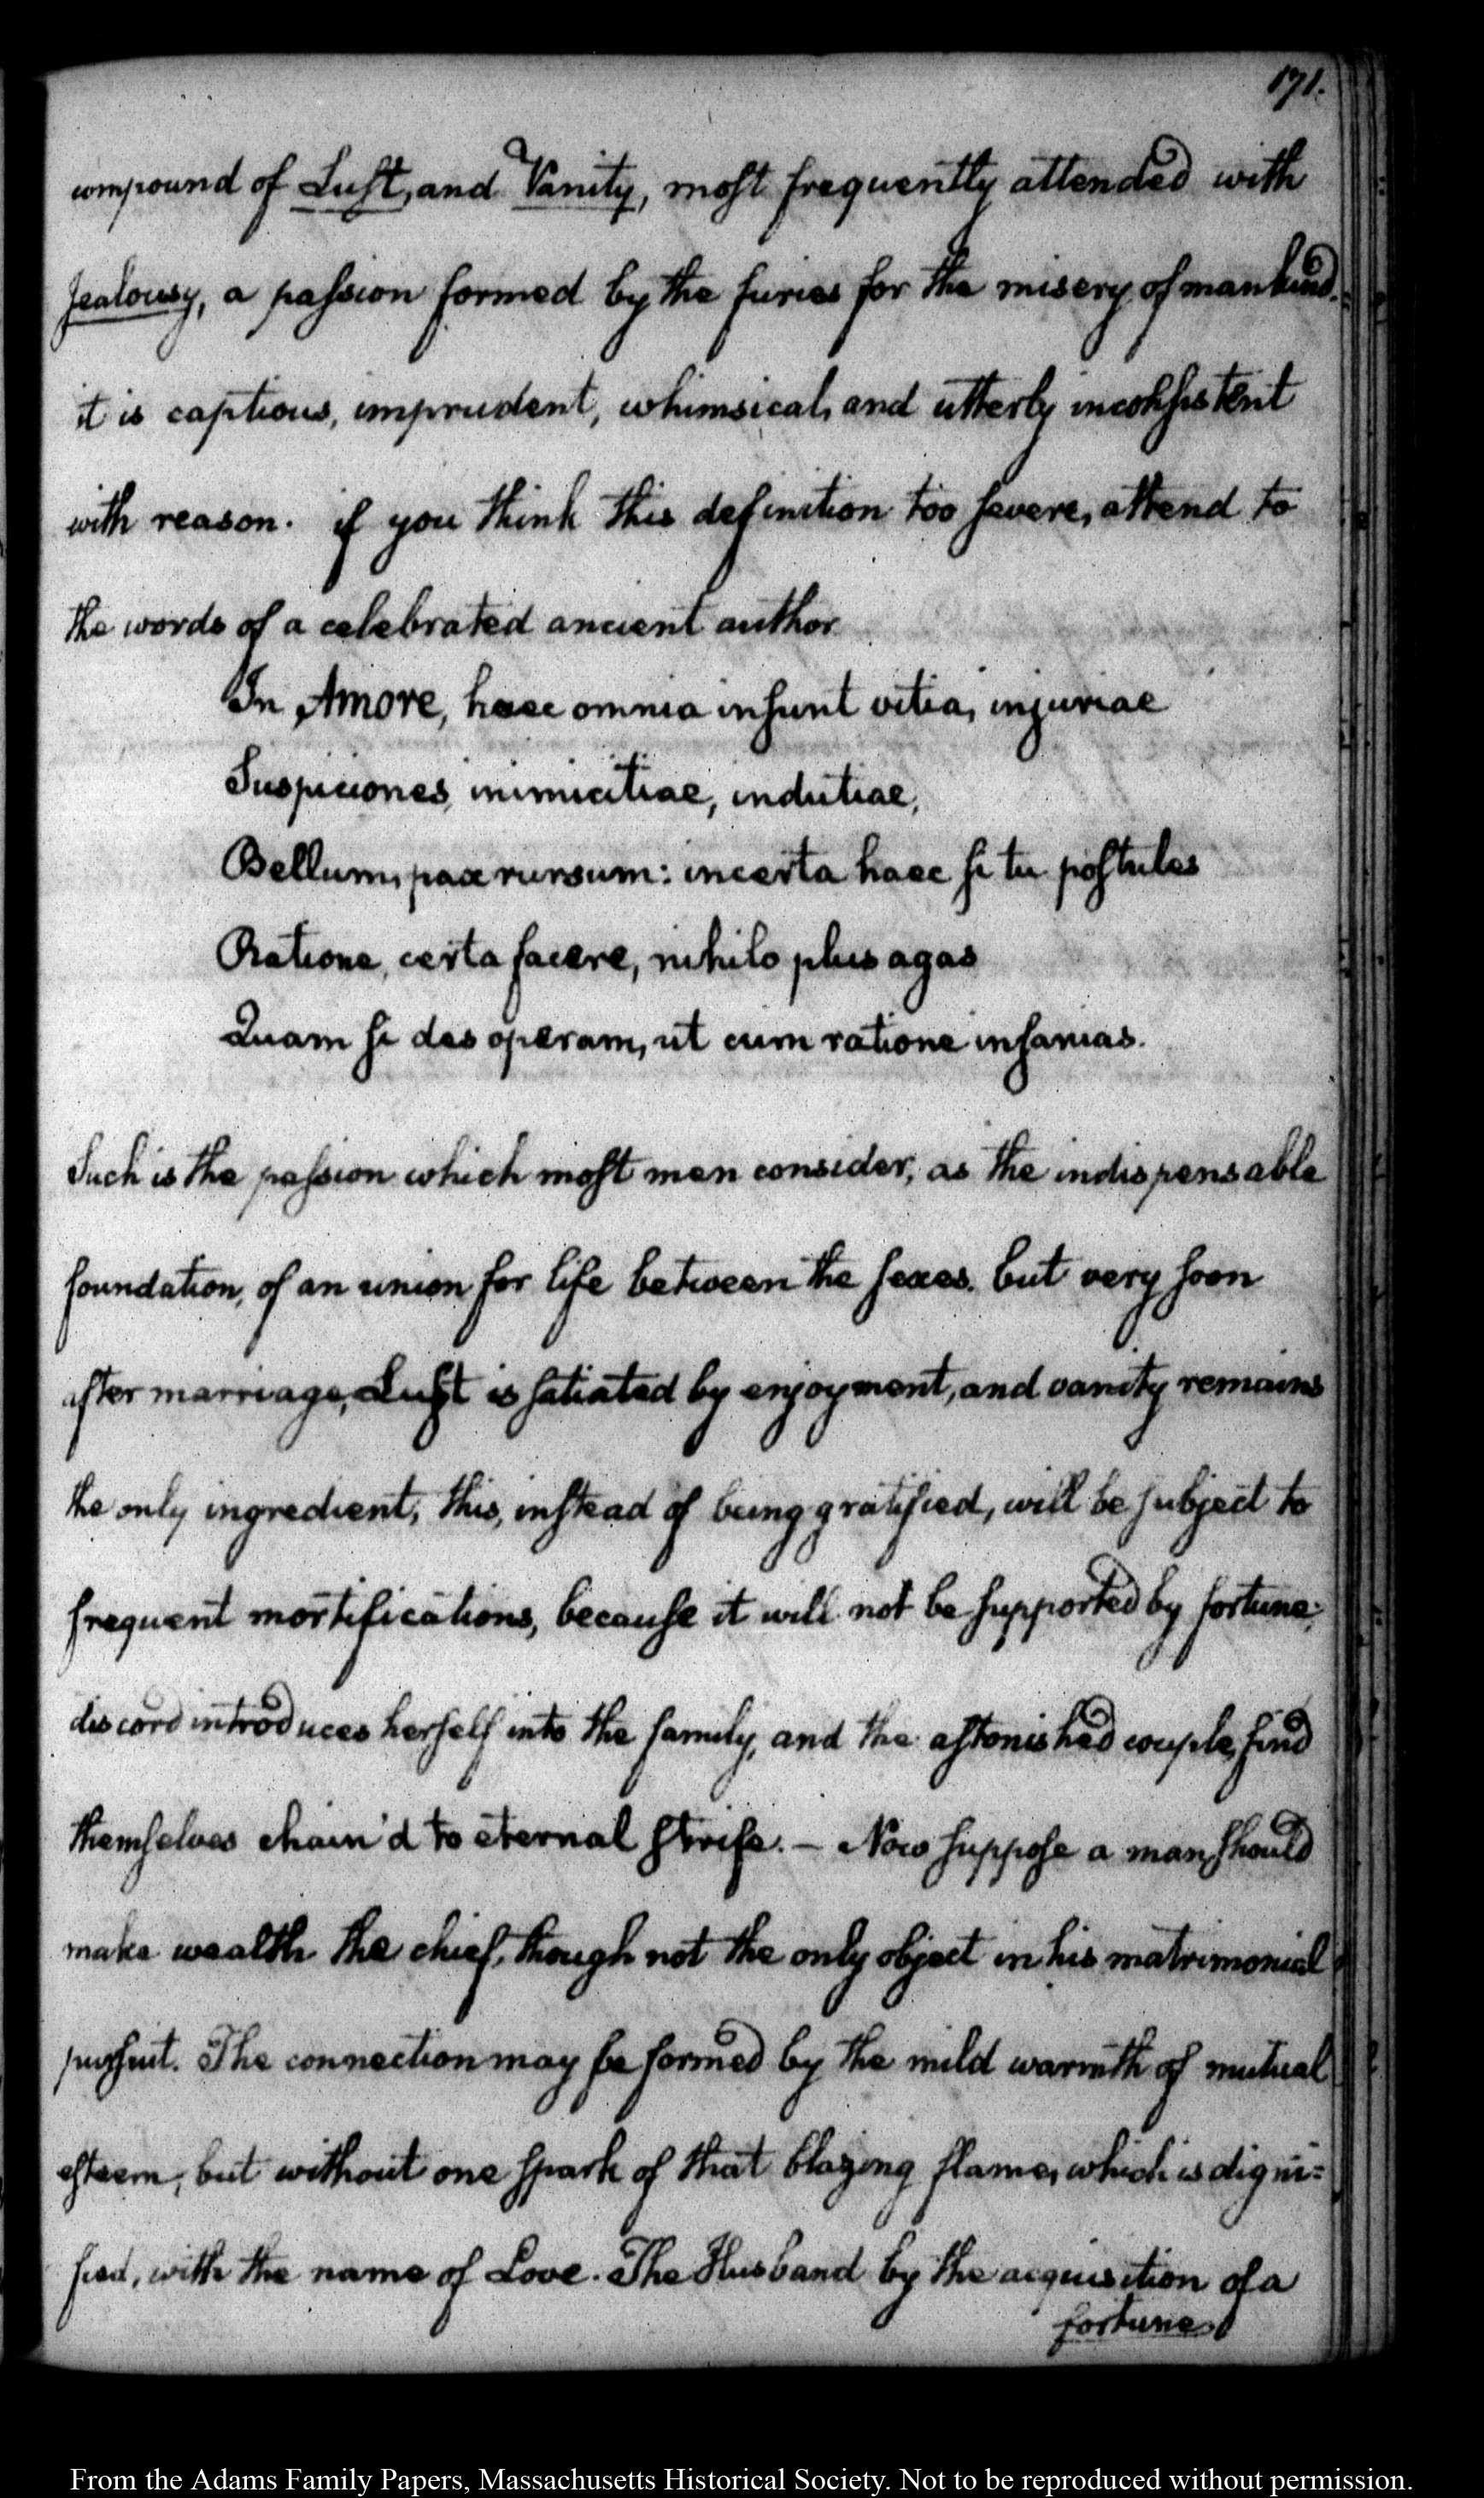 171.
compound of Lust, and Vanity, most frequently attended with
Jealousy, a passion formed by the furies for the misery of mankind.
it is captious, imprudent, whimsical, and utterly inconsistent
with reason. if you think this definition too severe, attend to
the words of a celebrated ancient author
In Amore, haec omnia insunt vitia, injuriae
Suspiciones, inimicitiae, indutiae,
Bellum, pax rursum: incerta haec si tu postules
Ratione, certa facere, nihilo plus agas
Quam si des operam, ut cum ratione insanias.
Such is the passion which most men consider, as the indispensable
foundation, of an union for life between the sexes. but very soon
after marriage, Lust is satiated by enjoyment, and vanity remains
the only ingredient, this, instead of being gratified, will be subject to
frequent mortifications, because it will not be supported by fortune;
discord introduces herself into the family, and the astonished couple, find
themselves chain'd to eternal strife. – Now suppose a man, should
make wealth the chief, though not the only object in his matrimonial
pursuit. The connection may be formed by the mild warmth of mutual
esteem, but without one spark of that blazing flame, which is digni=
fied, with the name of Love. The Husband by the acquisition of a
fortune
From the Adams Family Papers, Massachusetts Historical Society. Not to be reproduced without permission.